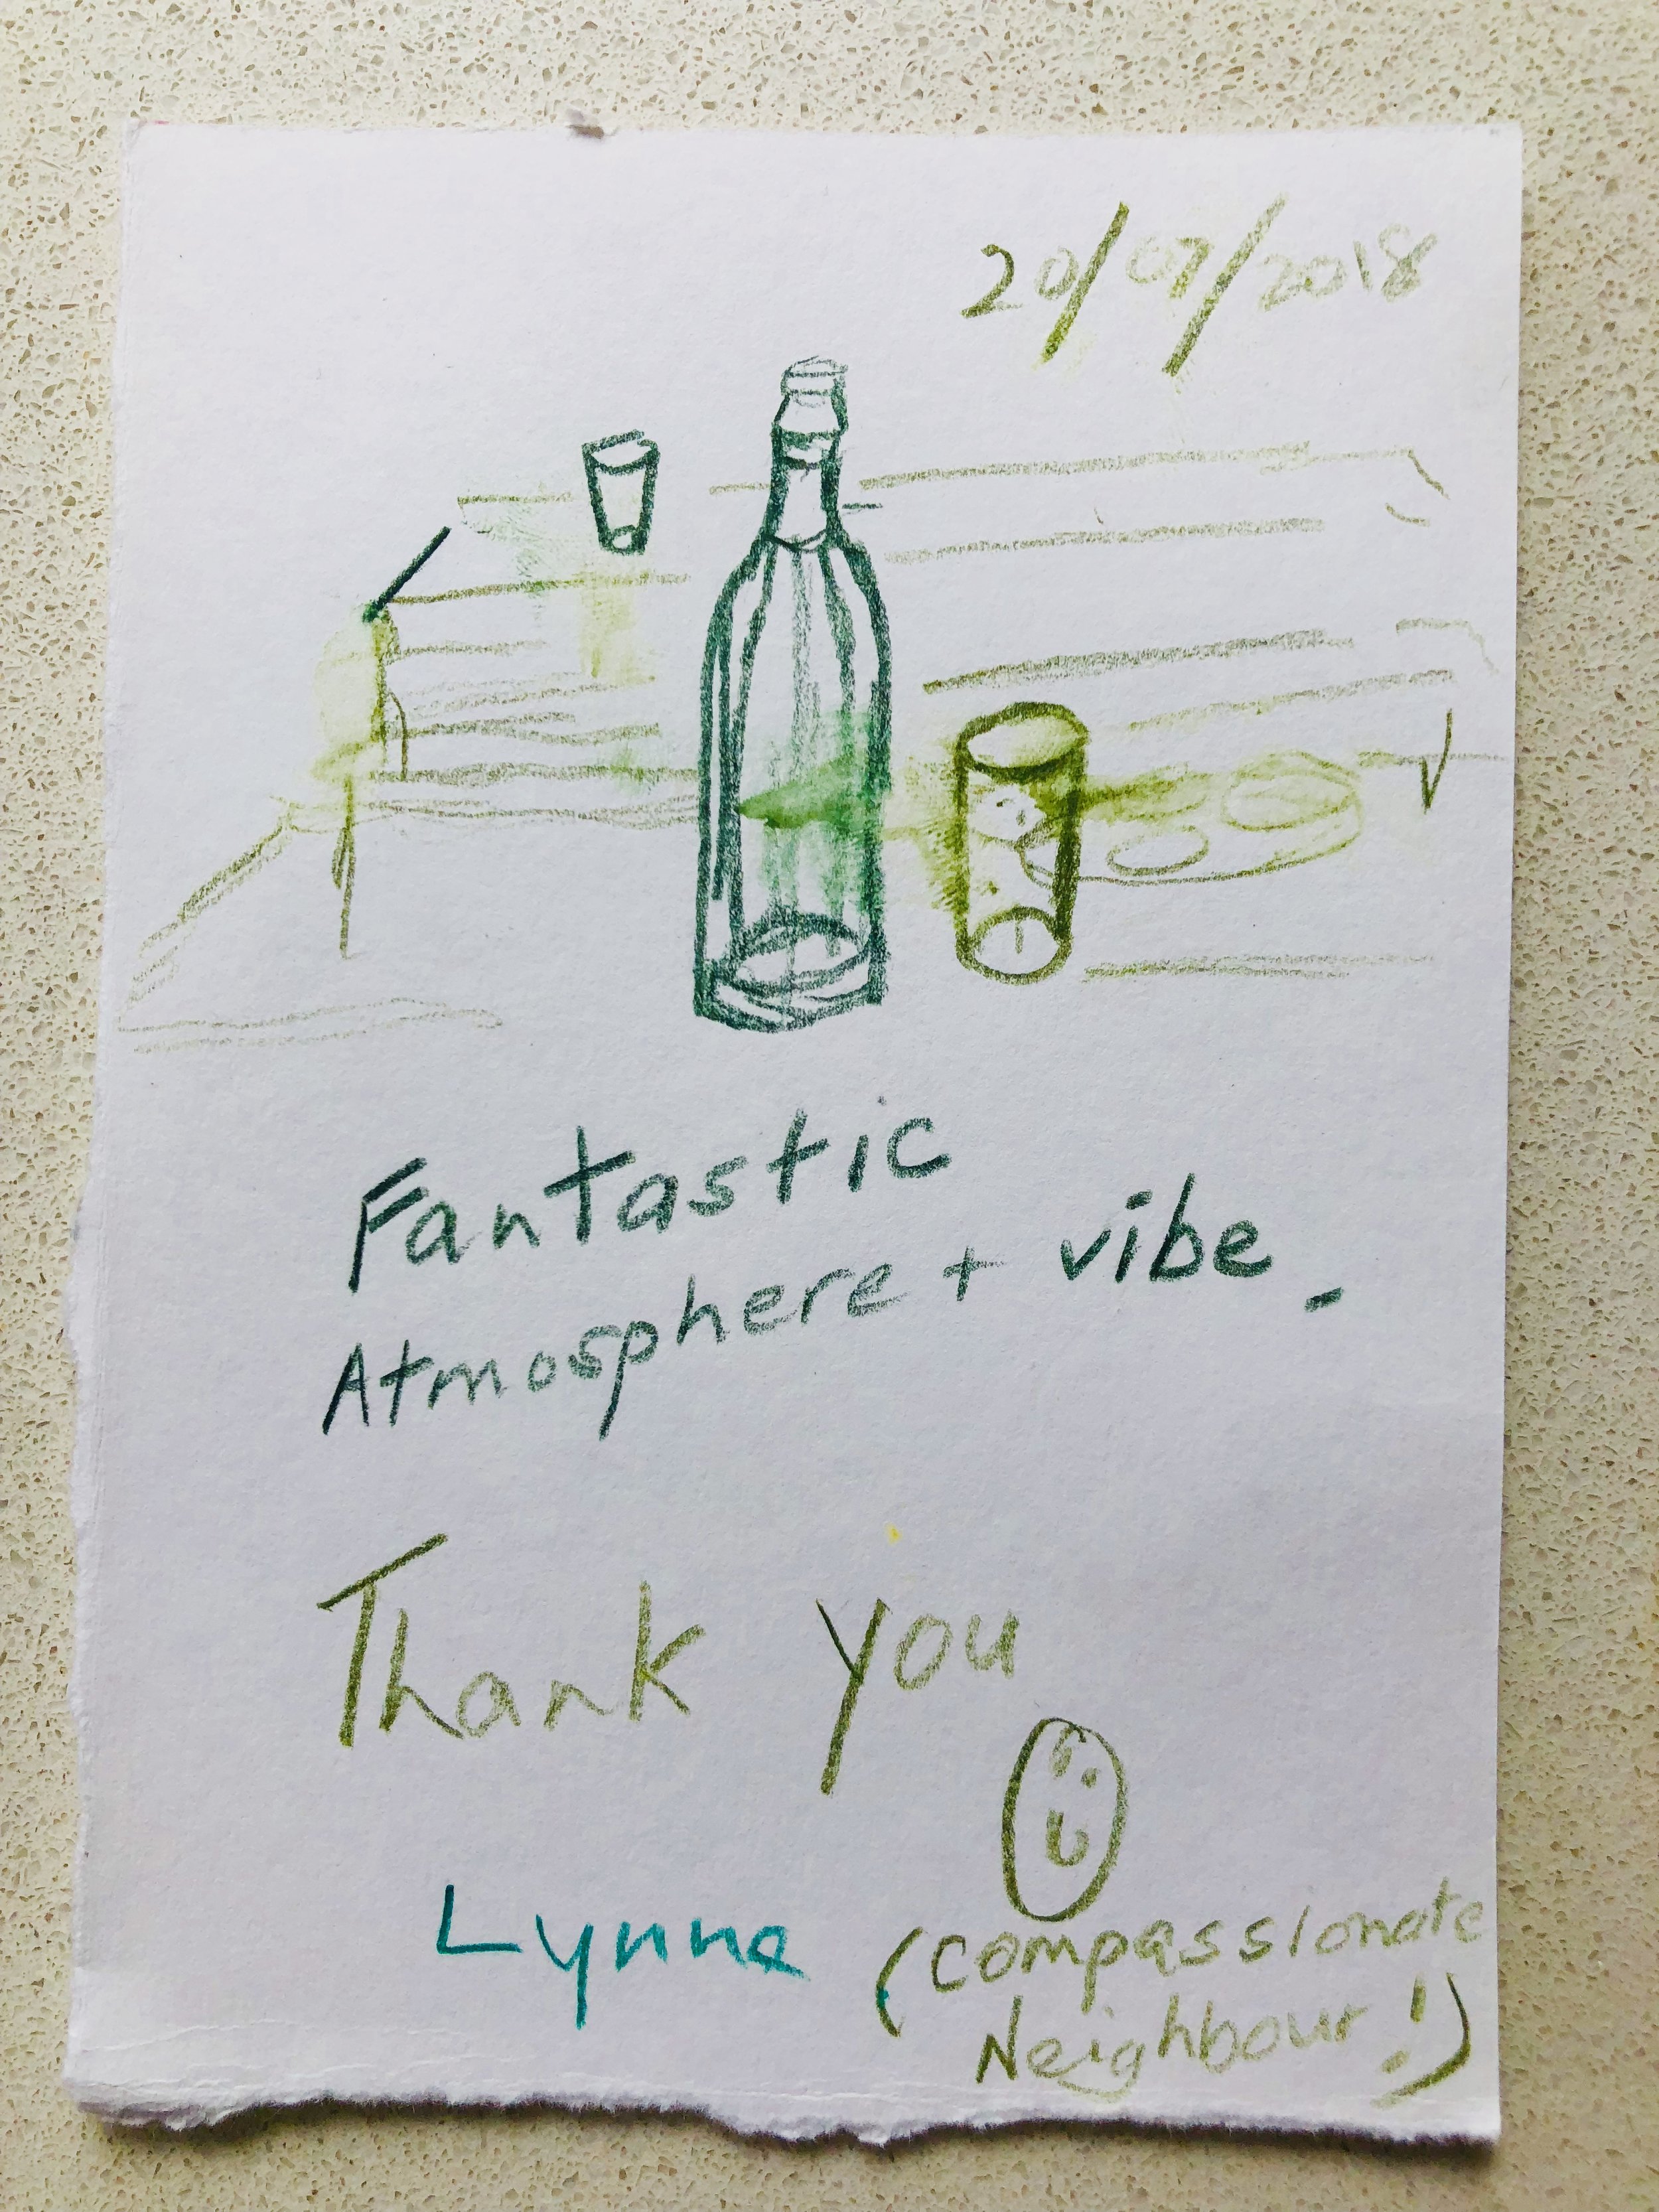 20/07/2018
Fantastic
Atmosphere + vibe.
Thank you
Lynne (compassionate
Neighbour!)